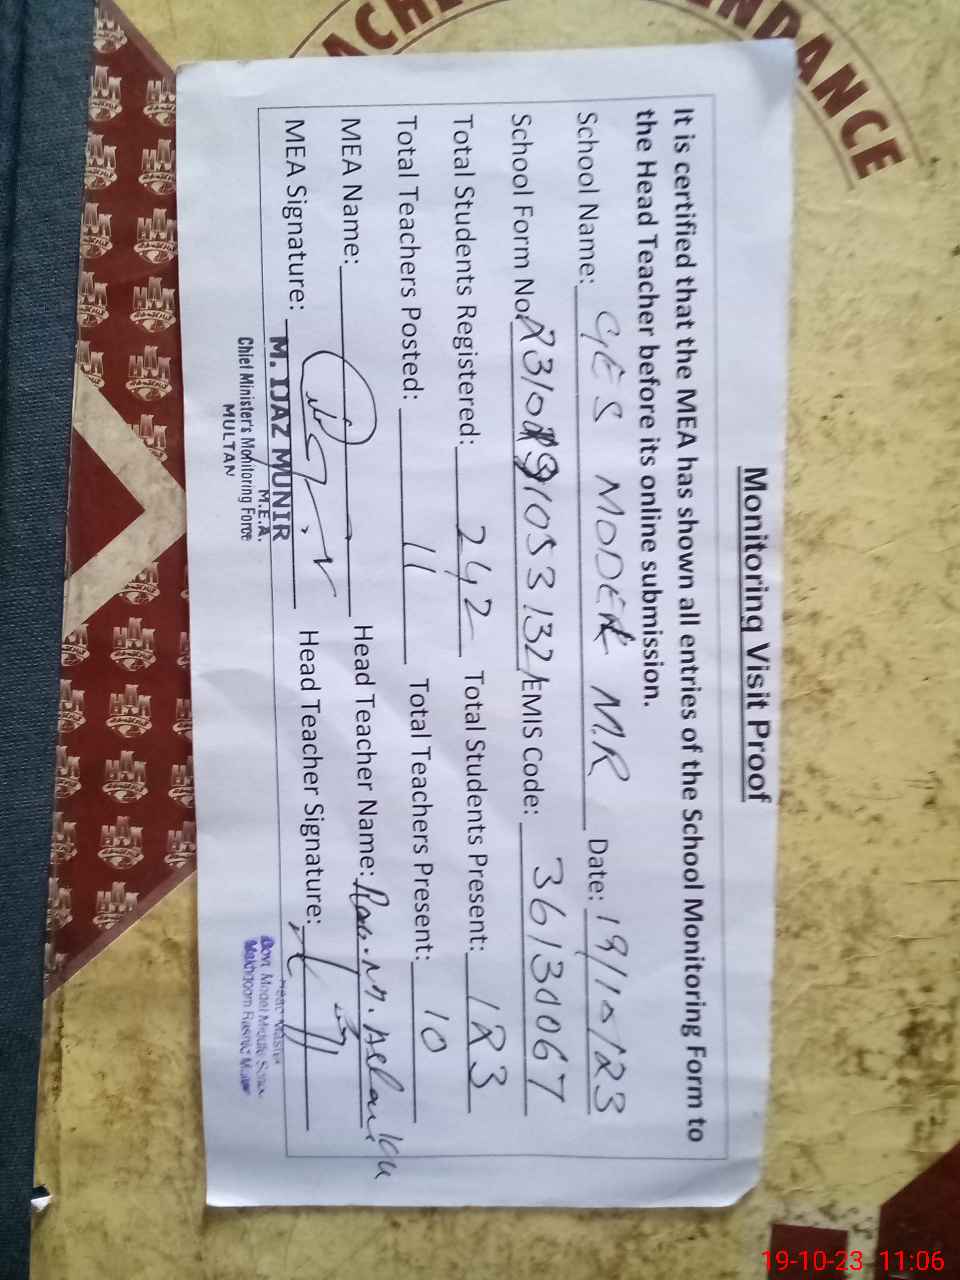 ACHE
NDANCE
Monitoring Visit Proof
It is certified that the MEA has shown all entries of the School Monitoring Form to
the Head Teacher before its online submission.
School Name: GES MODER M.R Date: 19/10/23
School Form No. EMIS Code: 36130067
Total Students Registered: 242 Total Students Present: 183
Total Teachers Posted: 11 Total Teachers Present: 10
MEA Name: Head Teacher Name: Rao. M. Aslam
MEA Signature: Head Teacher Signature:
M. IJAZ MUNIR
M.E.A.
Chief Minister's Monitoring Force
MULTAN
Head Master
Govt. Model Middle
Makhdoom Rashid
19-10-23 11:06